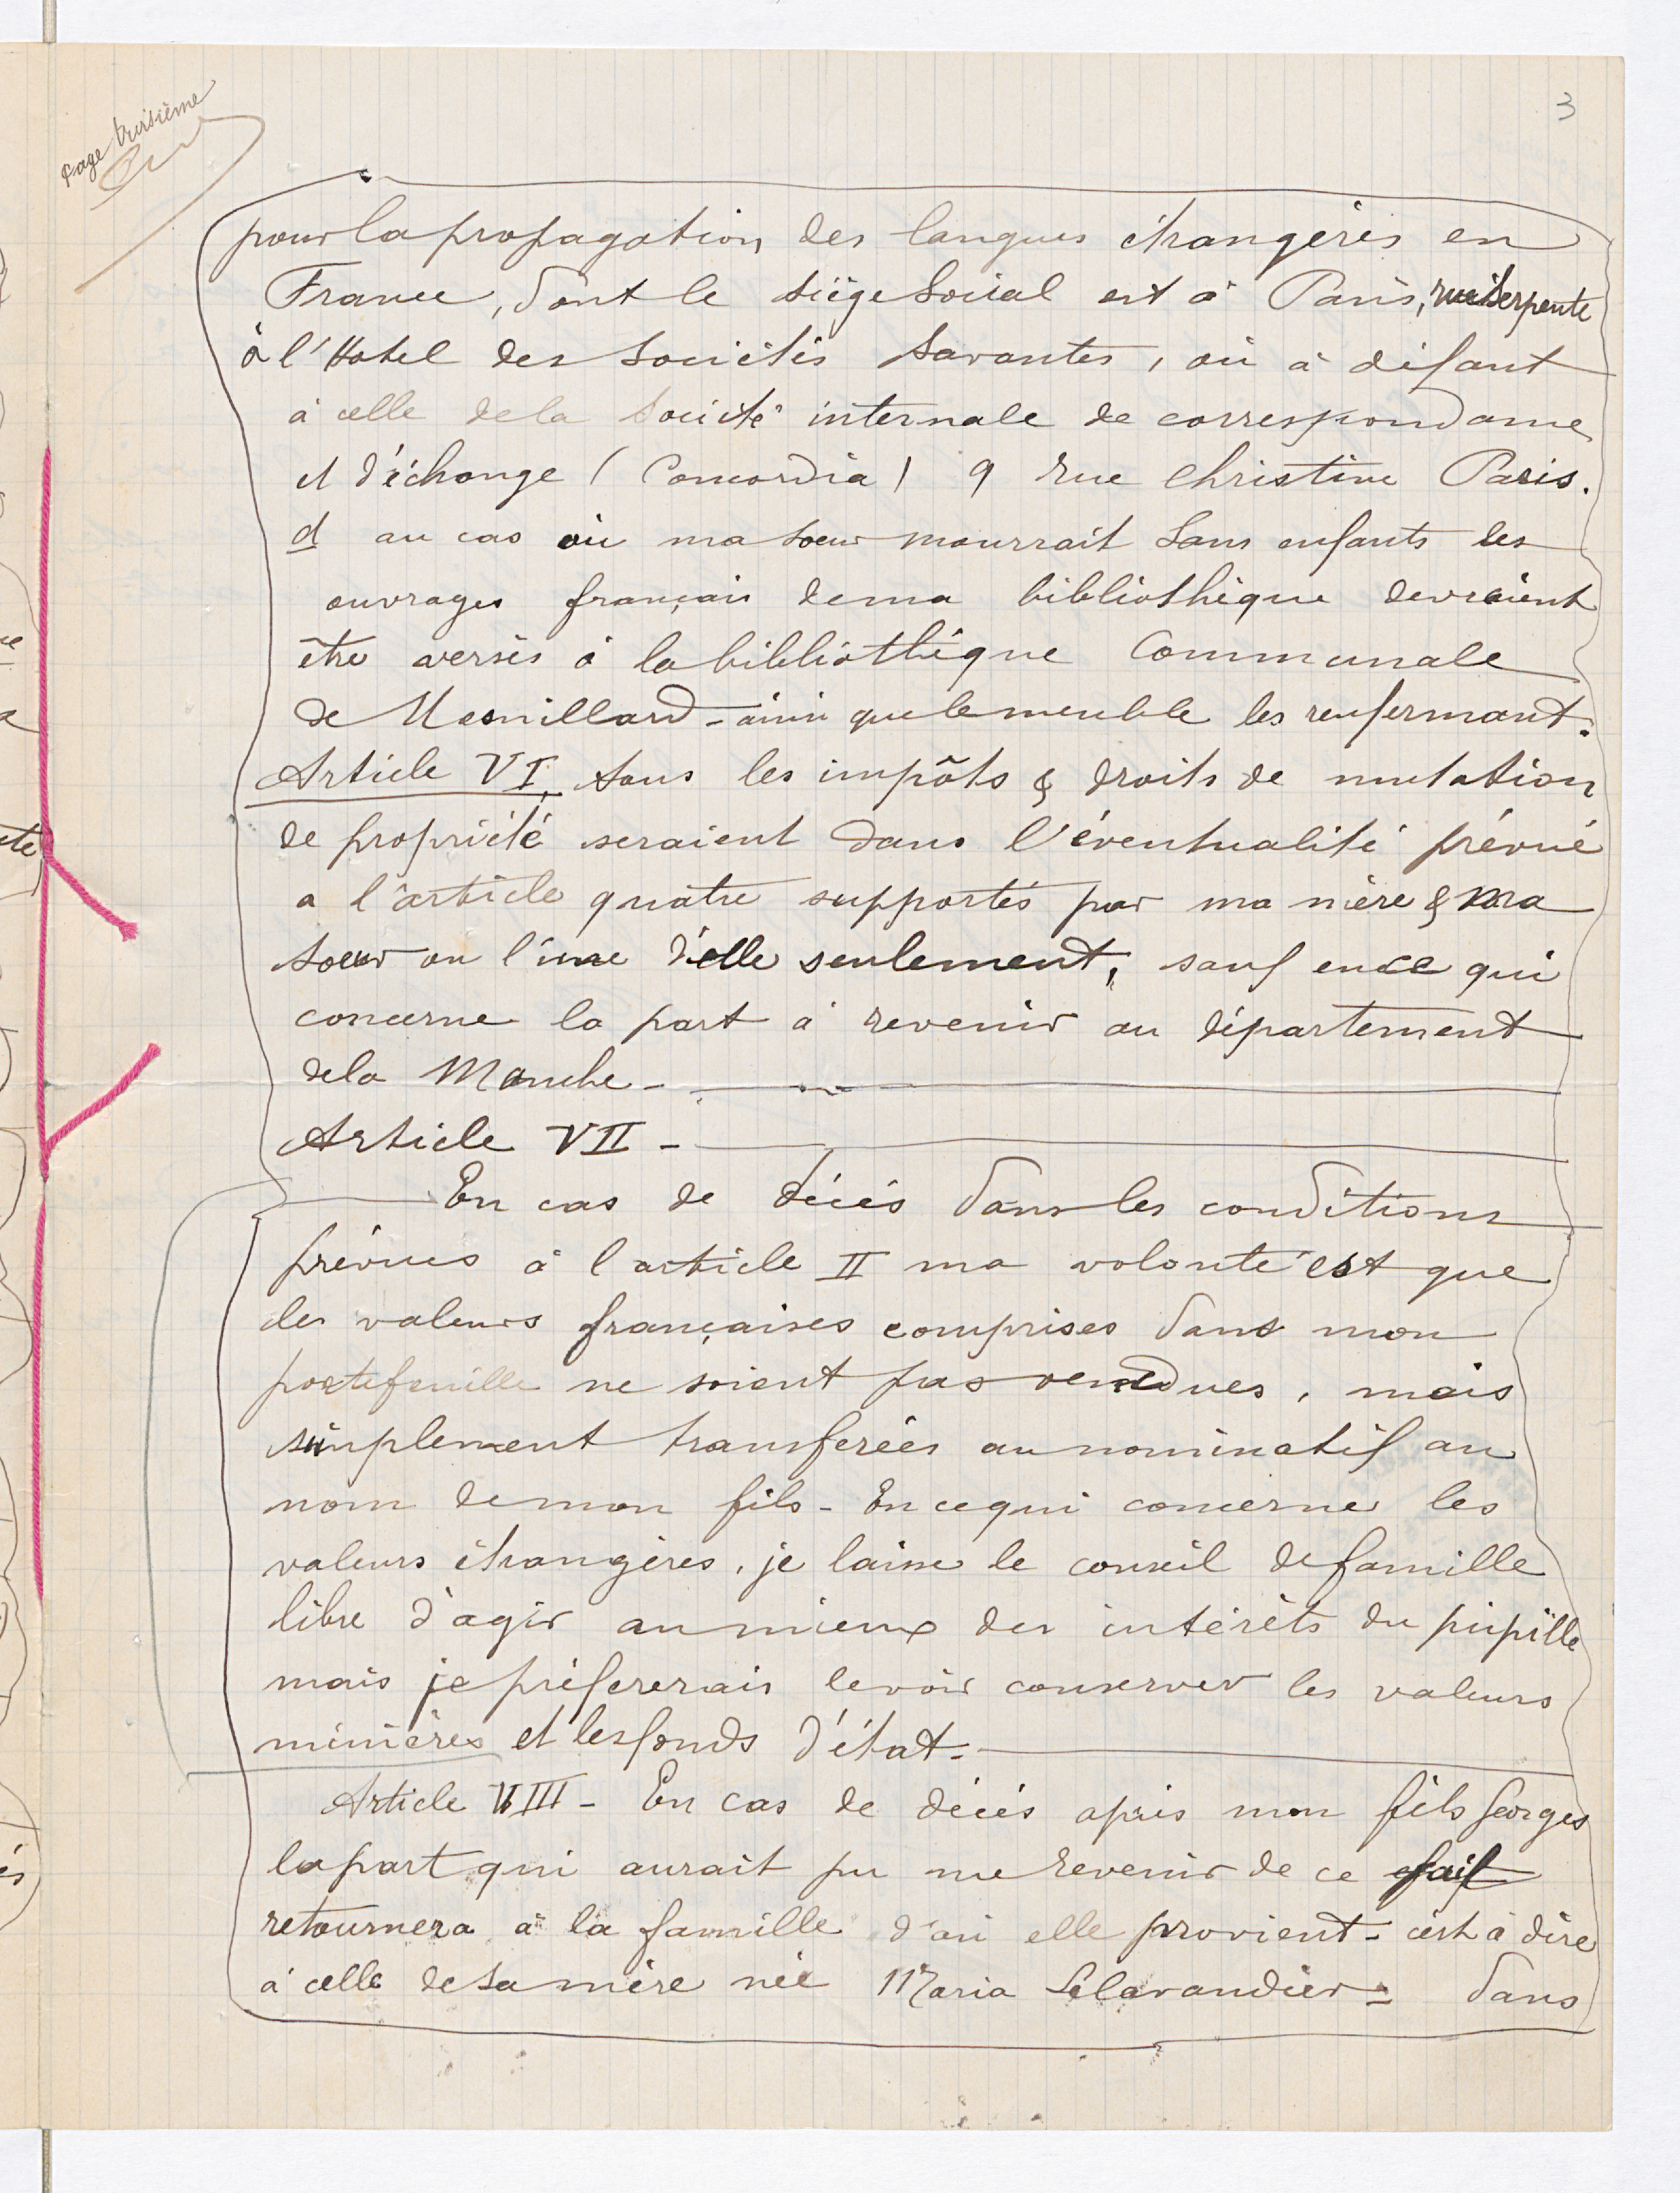 page troisième
3
pour la propagation des langues étrangères en
France, dont le siège social est à Paris, rue Serpente
à l'Hotel des Sociétés Savantes, où à défaut
à celle de la Société internale de correspondance
et d'échange (Concordia) 9 rue Christine Paris.
d au cas où ma sœur mourrait sans enfants les
ouvrages français de ma bibliothèque devraient
être versés à la bibliothèque Communale
de Mesnillard - ainsi que le meuble les renfermant.
Article VI, tous les impôts & droits de mutation
de propriété seraient dans l'éventualité prévue
a l'article quatre supportés par ma mère & ma
sœur ou l'une d'elle seulement, sauf en ce qui
concerne la part à revenir au département
de la Manche -
Article VII -
En cas de décés dans les conditions
prévues à l'article II ma volonté est que
les valeurs françaises comprises dans mon
portefeuille ne soient pas vendues, mais
simplement transférées au nominatif au
nom de mon fils - En ce qui concerne les
valeurs étrangères, je laisse le conseil de famille
libre d'agir au mieux des intérêts du pupille
mais je préfererais le voir conserver les valeurs
minières et les fonds d'état -
Article VIII - En cas de décés après mon fils Georges
la part qui aurait pu me revenir de ce fait
retournera à la famille d'où elle provient - cést à dire
à celle de sa mère née Maria Lelavandier - dans